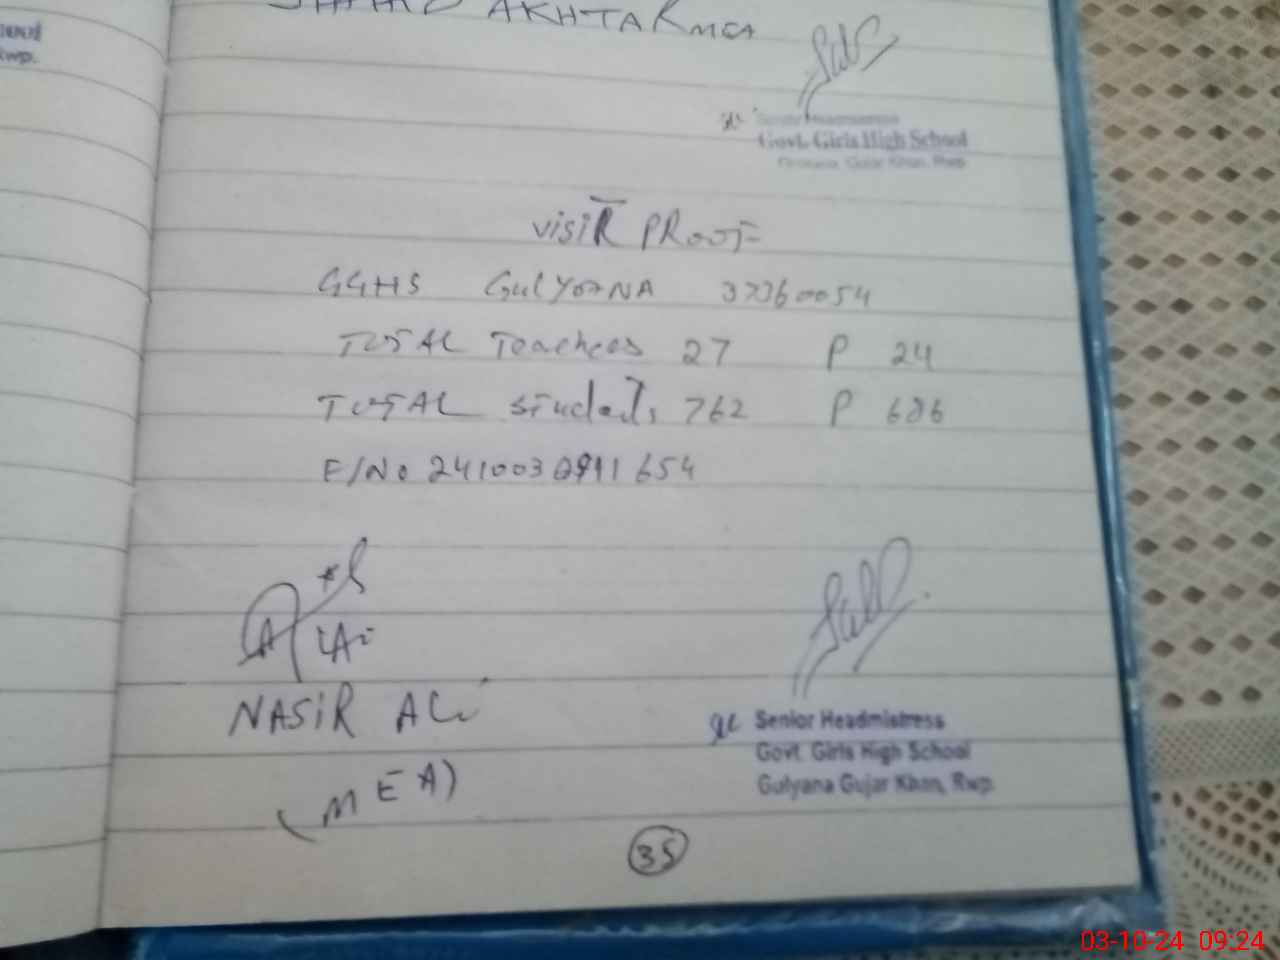 hool
Rwp.
AKHTAR MEA
Senior Headmistress
Govt. Girls High School
Gulyana Gujar Khan, Rwp
VISIT PROOF
GGHS GULYANA 37360054
TOTAL Teachers 27 P 24
TOTAL students 762 P 686
E/No 2410030911654
NASIR ALi
(MEA)
Senior Headmistress
Govt. Girls High School
Gulyana Gujar Khan, Rwp
35
03-10-24 09:24